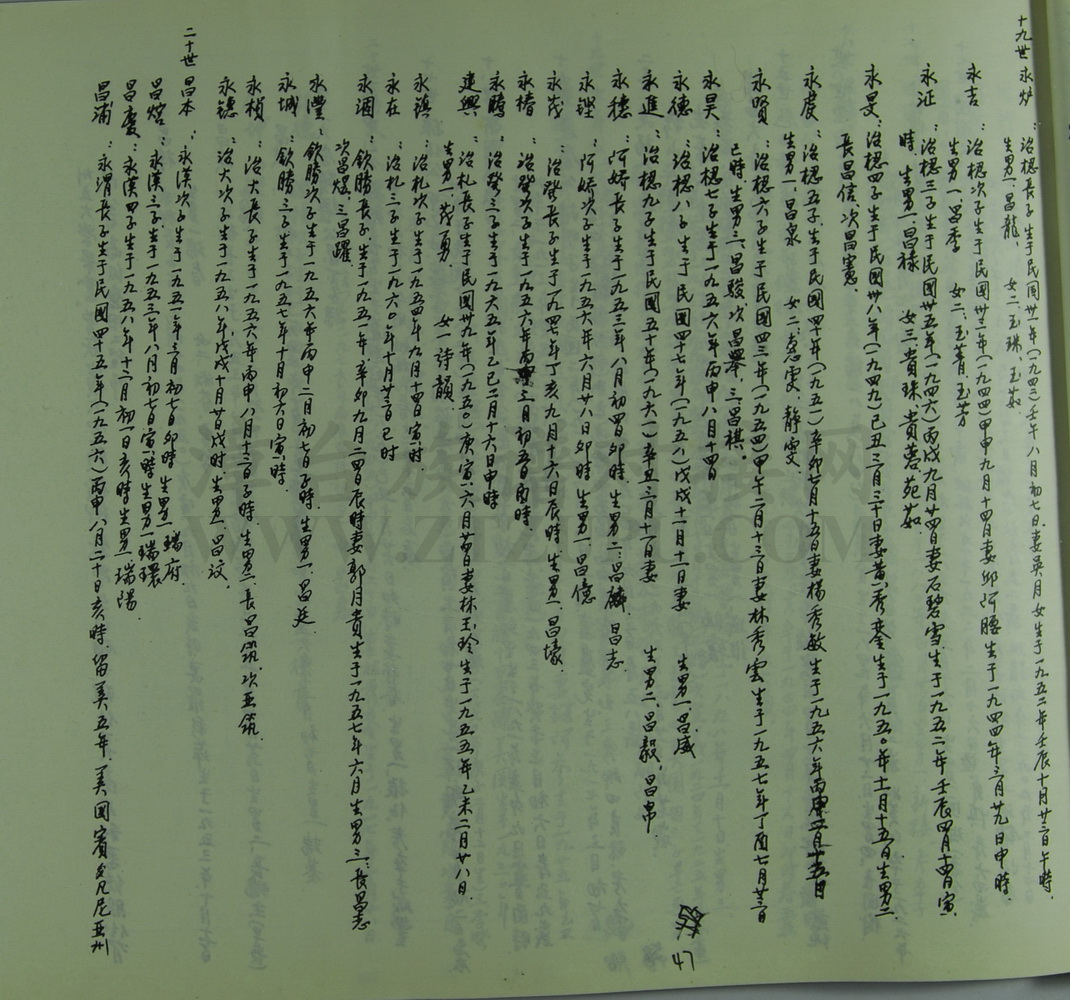 十九世 永炉：治樬長子生于民國卅一年(一九四二)壬午八月初七日.妻吳月女生于一九五二年壬辰十月廿二日午時.
生男一.昌龍. 女二.玉珠.玉茹
永吉：治樬次子生于民國卅三年(一九四四)甲申九月十四日妻邱阿腰生于一九四四年三月廿九日申時.
生男一昌季 女二.玉菁.玉芳
永证：治樬三子生于民國卅五年(一九四六)丙戌九月廿四日妻石碧雪.生于一九五二年壬辰四月十四日寅
時.生男一昌祿 女三.貴珠.貴蓉.苑茹
永旻：治樬四子生于民國卅八年(一九四九)己丑三月三十日妻黄秀鑾生于一九五〇年十一月十五日生男二
長昌信.次昌憲.
永慶：治樬五子.生于民國四十年(一九五一)辛卯七月十五日妻楊秀敏生于一九五六年丙申
生男一.昌泉 女二.惠雯.靜雯
永賢：治樬六子生于民國四三年(一九五四)甲午二月十三日妻林秀雲生于一九五七年丁酉七月廿三日
巳時.生男三.昌駿.次昌舉.三.昌祺。
永昊：治樬七子生于一九五六年丙申八月十四日
永德：治樬八子生于民國四七年(一九五八)戊戌十一月十二日妻 生男一.昌威
永進：治樬九子生于民國五十年(一九六一)辛丑三月十一日妻 生男二.昌毅.昌帛
永穗：阿娇長子生于一九五三年八月初四日卯時.生男二：昌麟.昌志
永鏗：阿娇次子生于一九五六年六月廿八日卯時生男一昌億
永茂：治發長子生于一九四七年丁亥九月十六日辰時.生男一.昌壕.
永椿：治發次子生于一九五六年丙申三月初五日酉時.
永腾：治發三子生于一九六五年乙巳二月十六日申時
建興：治札長子生于民國卅九年(一九五〇)庚寅六月廿四日妻林玉玲生于一九五五年乙未二月廿八日.
生男一.茂勇. 女一詩韻
永滨：治札次子生于一九五四年九月十四日寅時.
永在：治札三子生于一九六〇年十月廿三日巳时
永洄：欽勝長子.生于一九五一年.辛卯九月二四日辰時妻郭月貴生于一九五七年六月生男三：長昌志
次昌煜.三昌躍.
永灃：欽勝次子生于一九五六年丙申二月初七日子時.生男一.昌廷.
永城：欽勝三子生于一九五七年十月初六日寅時.
永楨：治大長子生于一九五六年丙申八月十三日子時.生男二.長昌筑.次亚筑.
永德：治大次子生于一九五八年.戊戌十月廿日戌时.生男一.昌汶.
二十世 昌本：永漢次子生于一九五一年三月初七日卯時 生男一瑞府.
昌熔：永漢三子.生于一九五三年八月初七日寅時生男一瑞環
昌慶：永漢四子生于一九五八年十二月初一日亥時生男一瑞陽
昌浦：永清長子生于民國四十五年(一九五六)丙申八月二十日亥時.留美五年.美國賓夕凡尼亚州
47